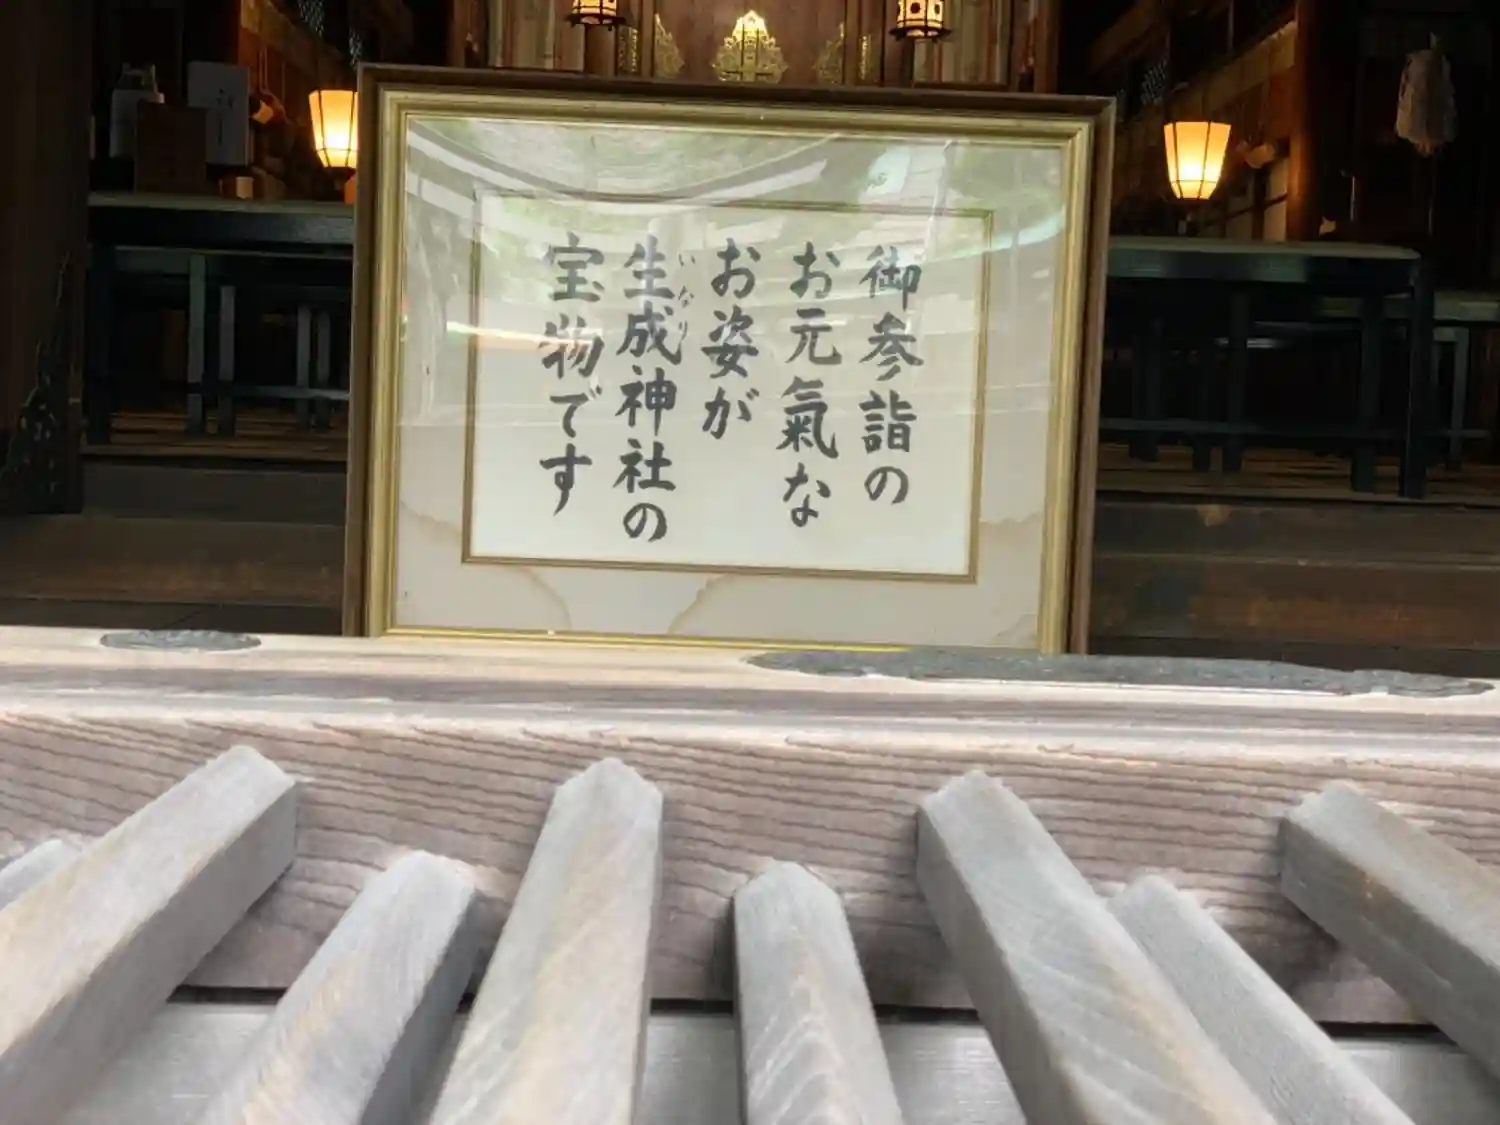 御参詣の
お元氣な
お姿が
生成神社の
いなり
宝物です